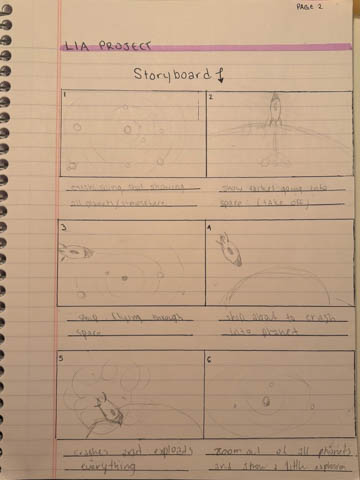 PAGE 2
LIA PROJECT
Storyboard
1
2
shot showing
all planets/
show rocket going into
space (take off)
3
4
ship flying through
space
ship about to crash
into planet
5
6
crashes and explodes
everything
zoom out of all planets
and show a little explosion